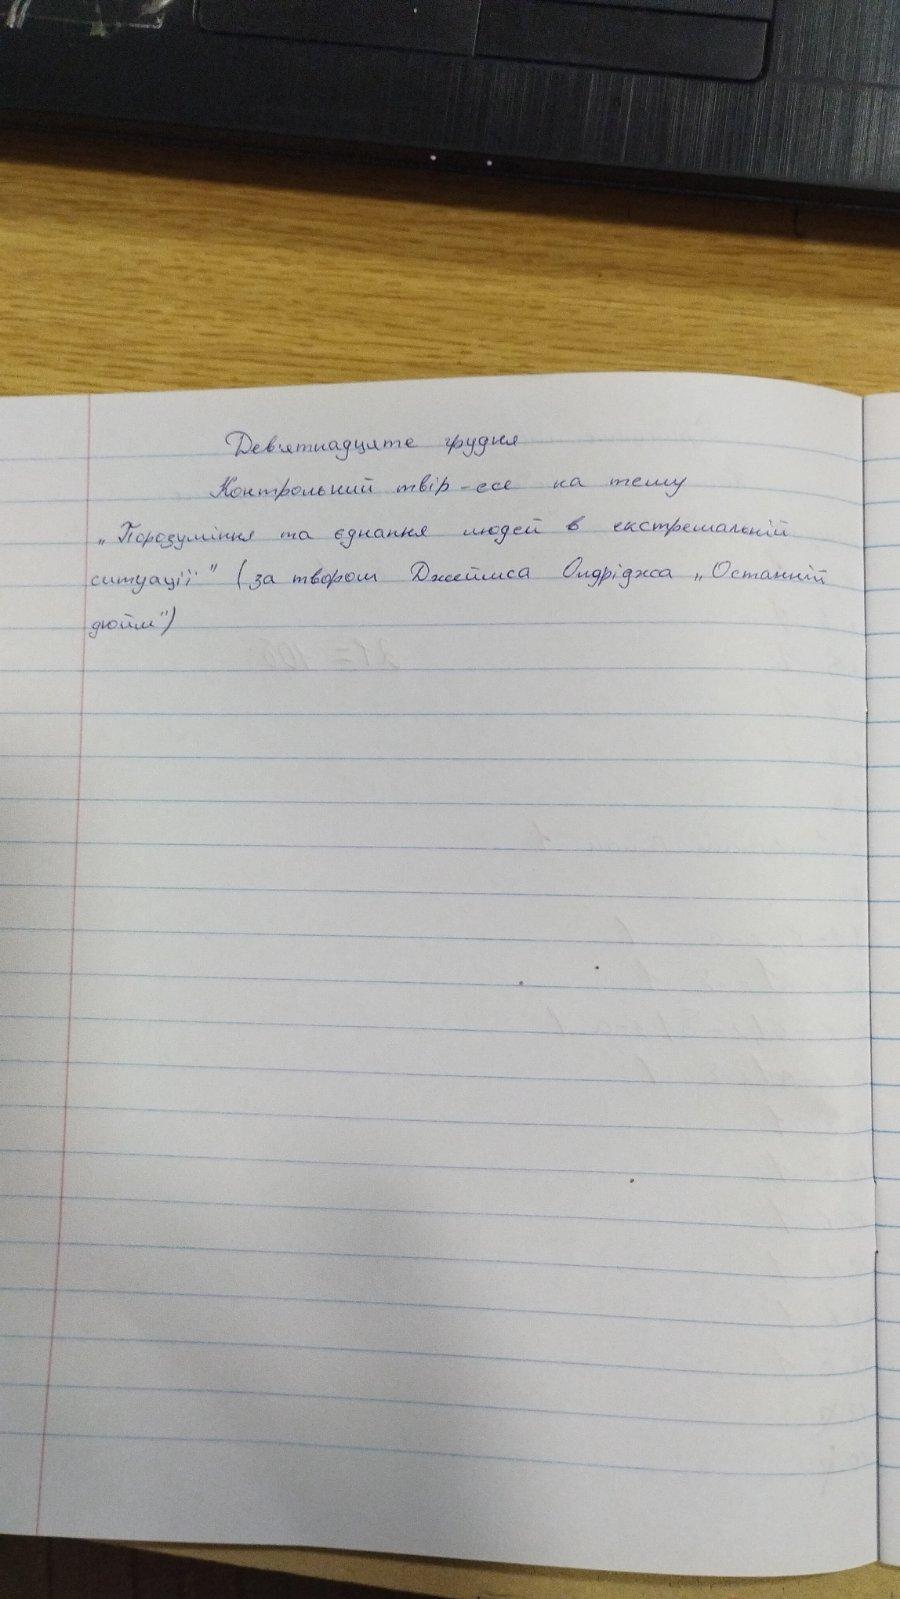 Дев'ятнадцяте грудня
Контрольний твір-есе на тему
„Порозуміння та єднання людей в екстремальній
ситуації" (за твором Джеймса Олдріджа „Останній
дюйм")